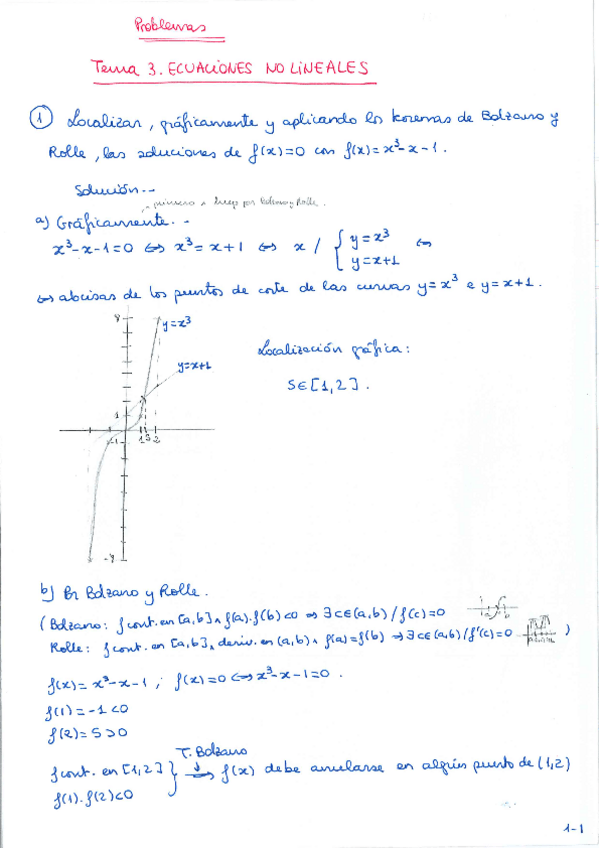 Problemas
Tema 3. ECUACIONES NO LINEALES
① Localizar, gráficamente y aplicando los teoremas de Bolzano y
Rolle, las soluciones de f(x)=0 con f(x)=x³-x-1.
Solución.-
primero luego por Bolzano y Rolle.
a) Gráficamente.-
x³-x-1=0 ⇔ x³=x+1 ⇔ x / { y=x³ ⇔
y=x+1
⇔ abcisas de los puntos de corte de las curvas y=x³ e y=x+1.
8
y=x³
y=x+1
Localización gráfica:
S∈[1,2].
1
-1 1 S 2
b) Por Bolzano y Rolle.
(Bolzano: f cont. en [a,b] ∧ f(a).f(b)<0 ⇒ ∃c∈(a,b) / f(c)=0
Rolle: f cont. en [a,b], deriv. en (a,b) ∧ f(a)=f(b) ⇒ ∃c∈(a,b) / f'(c)=0 )
f(x)=x³-x-1 ; f(x)=0 ⇔ x³-x-1=0.
f(1)=-1<0
f(2)=5>0
T. Bolzano
f cont. en [1,2] } ⇒ f(x) debe anularse en algún punto de (1,2)
f(1).f(2)<0
1-1